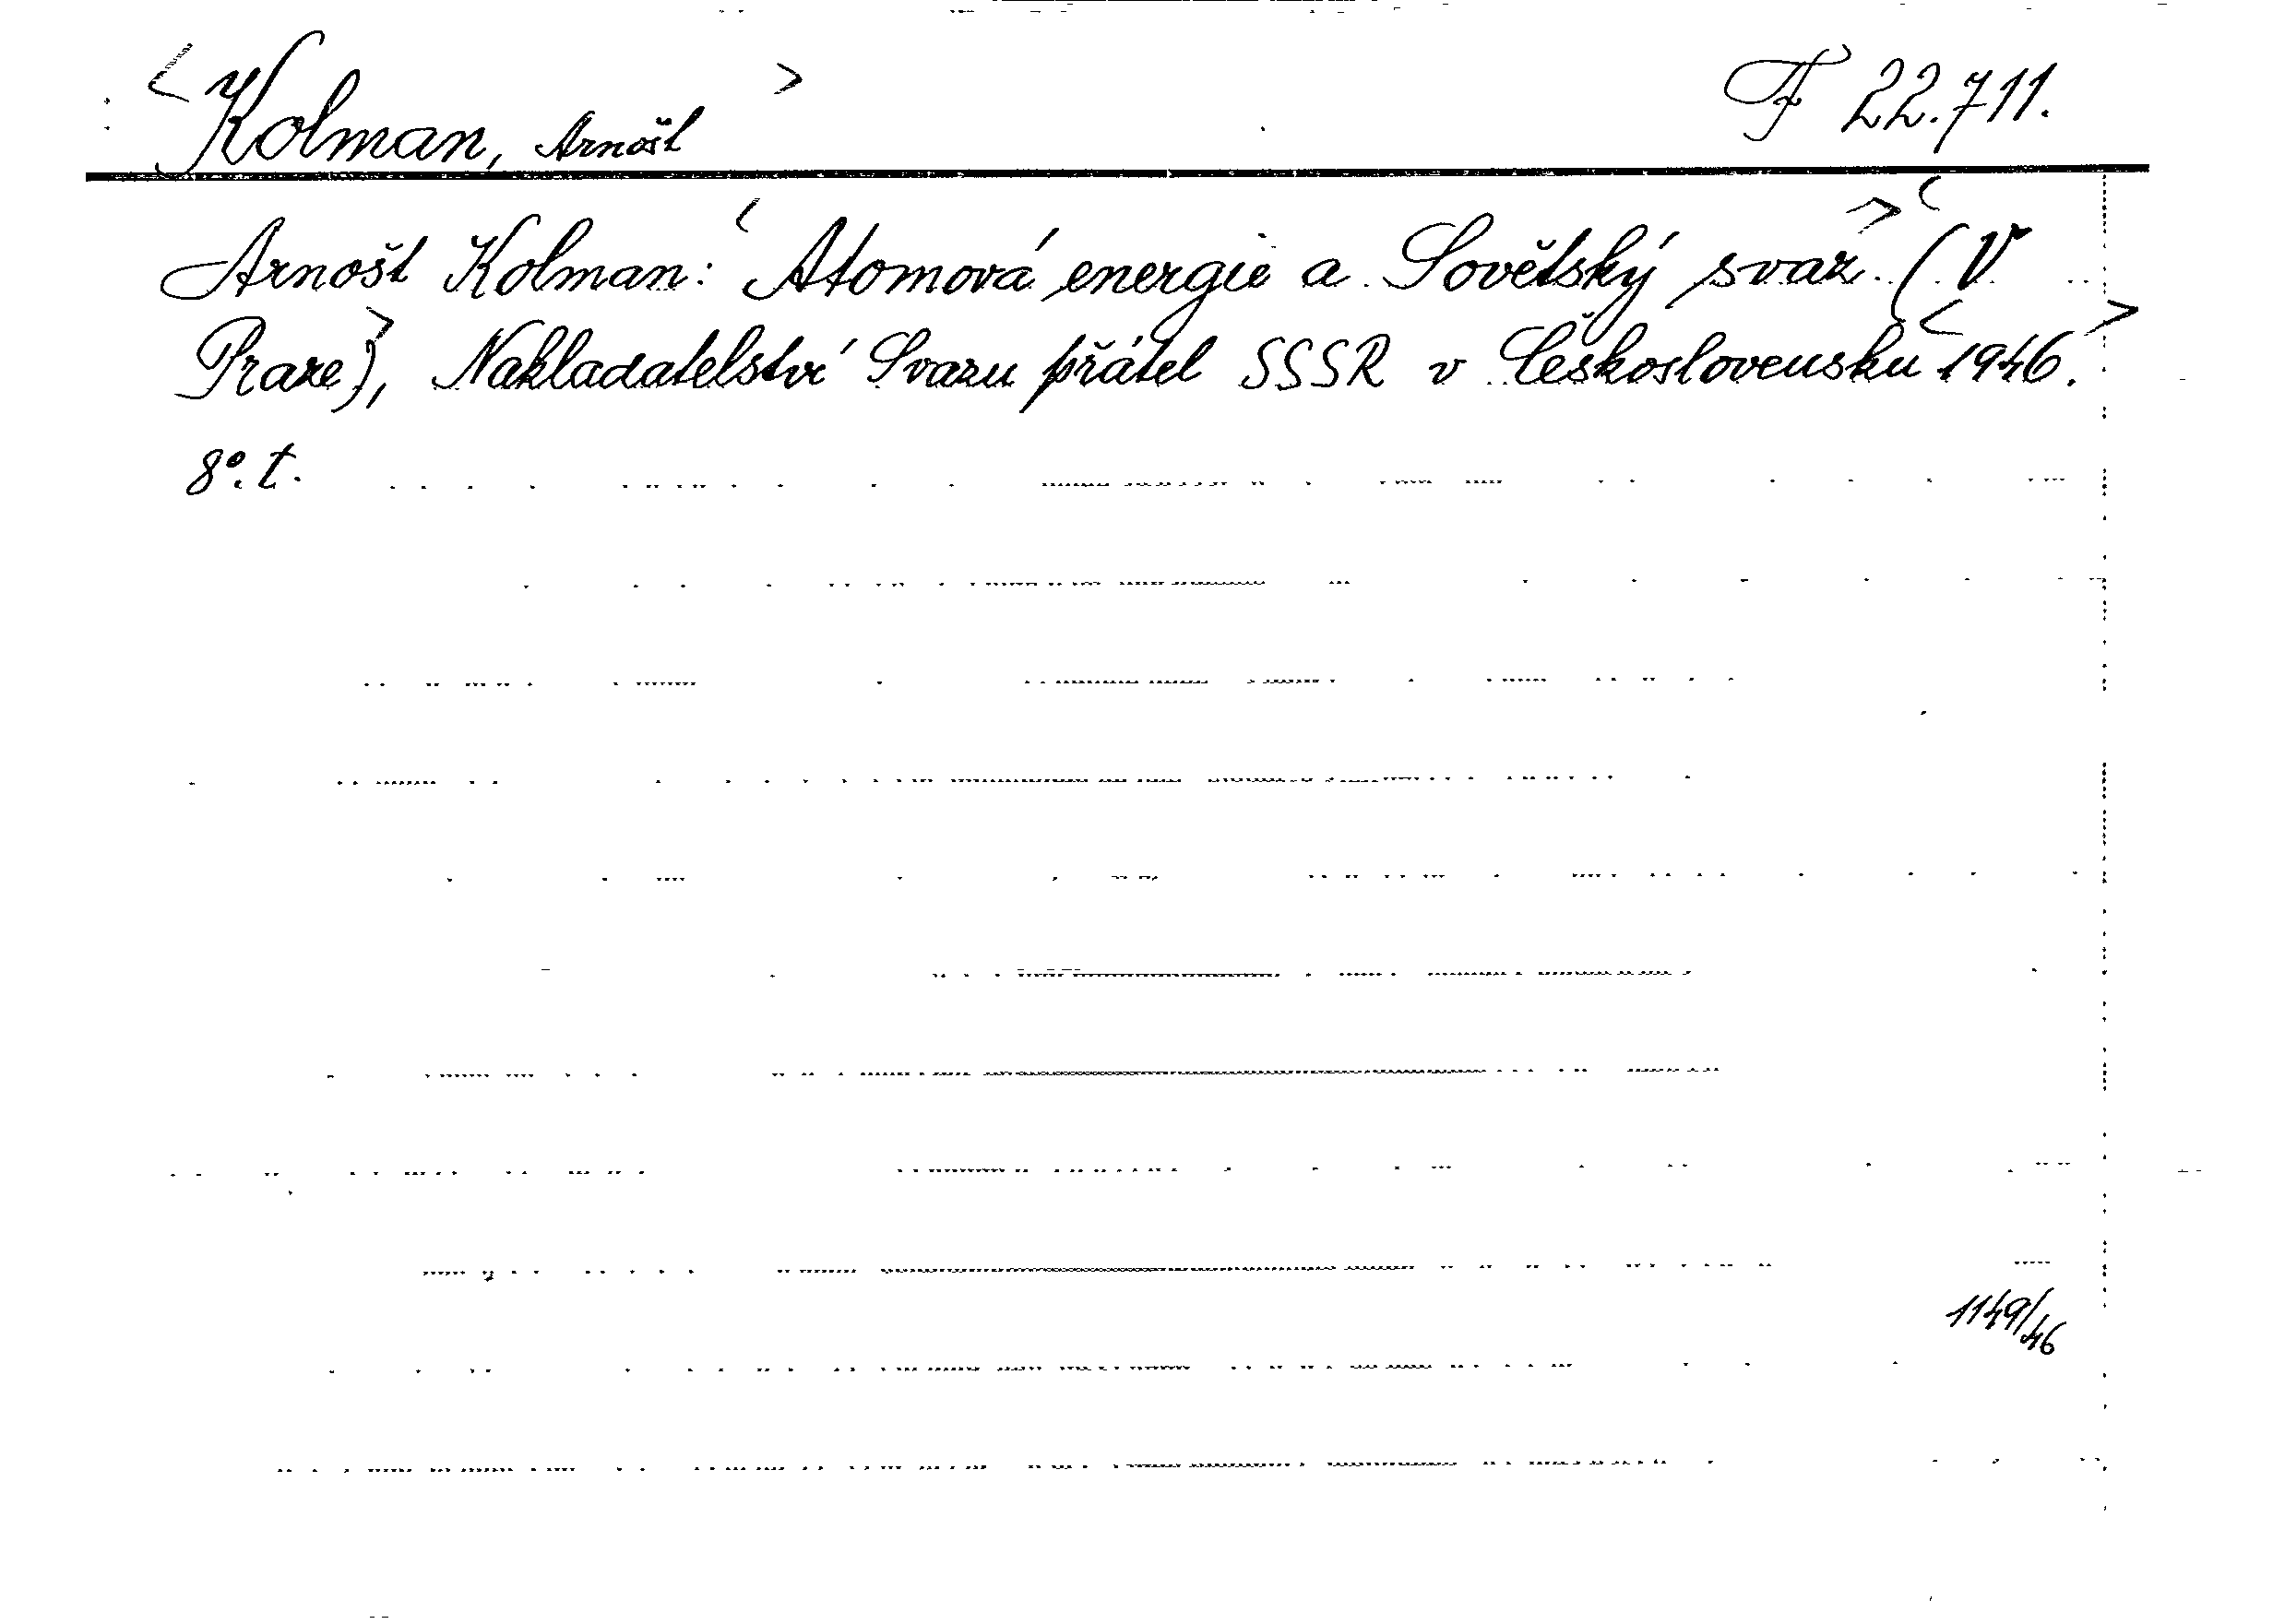 <Kolman, Arnošt> F 22.711.
Arnošt Kolman: <Atomová energie a Sovětský svaz.> <(V
Praze)>, Nakladatelství Svazu přátel SSSR v Československu <1946.>
8°. t.
1149/46